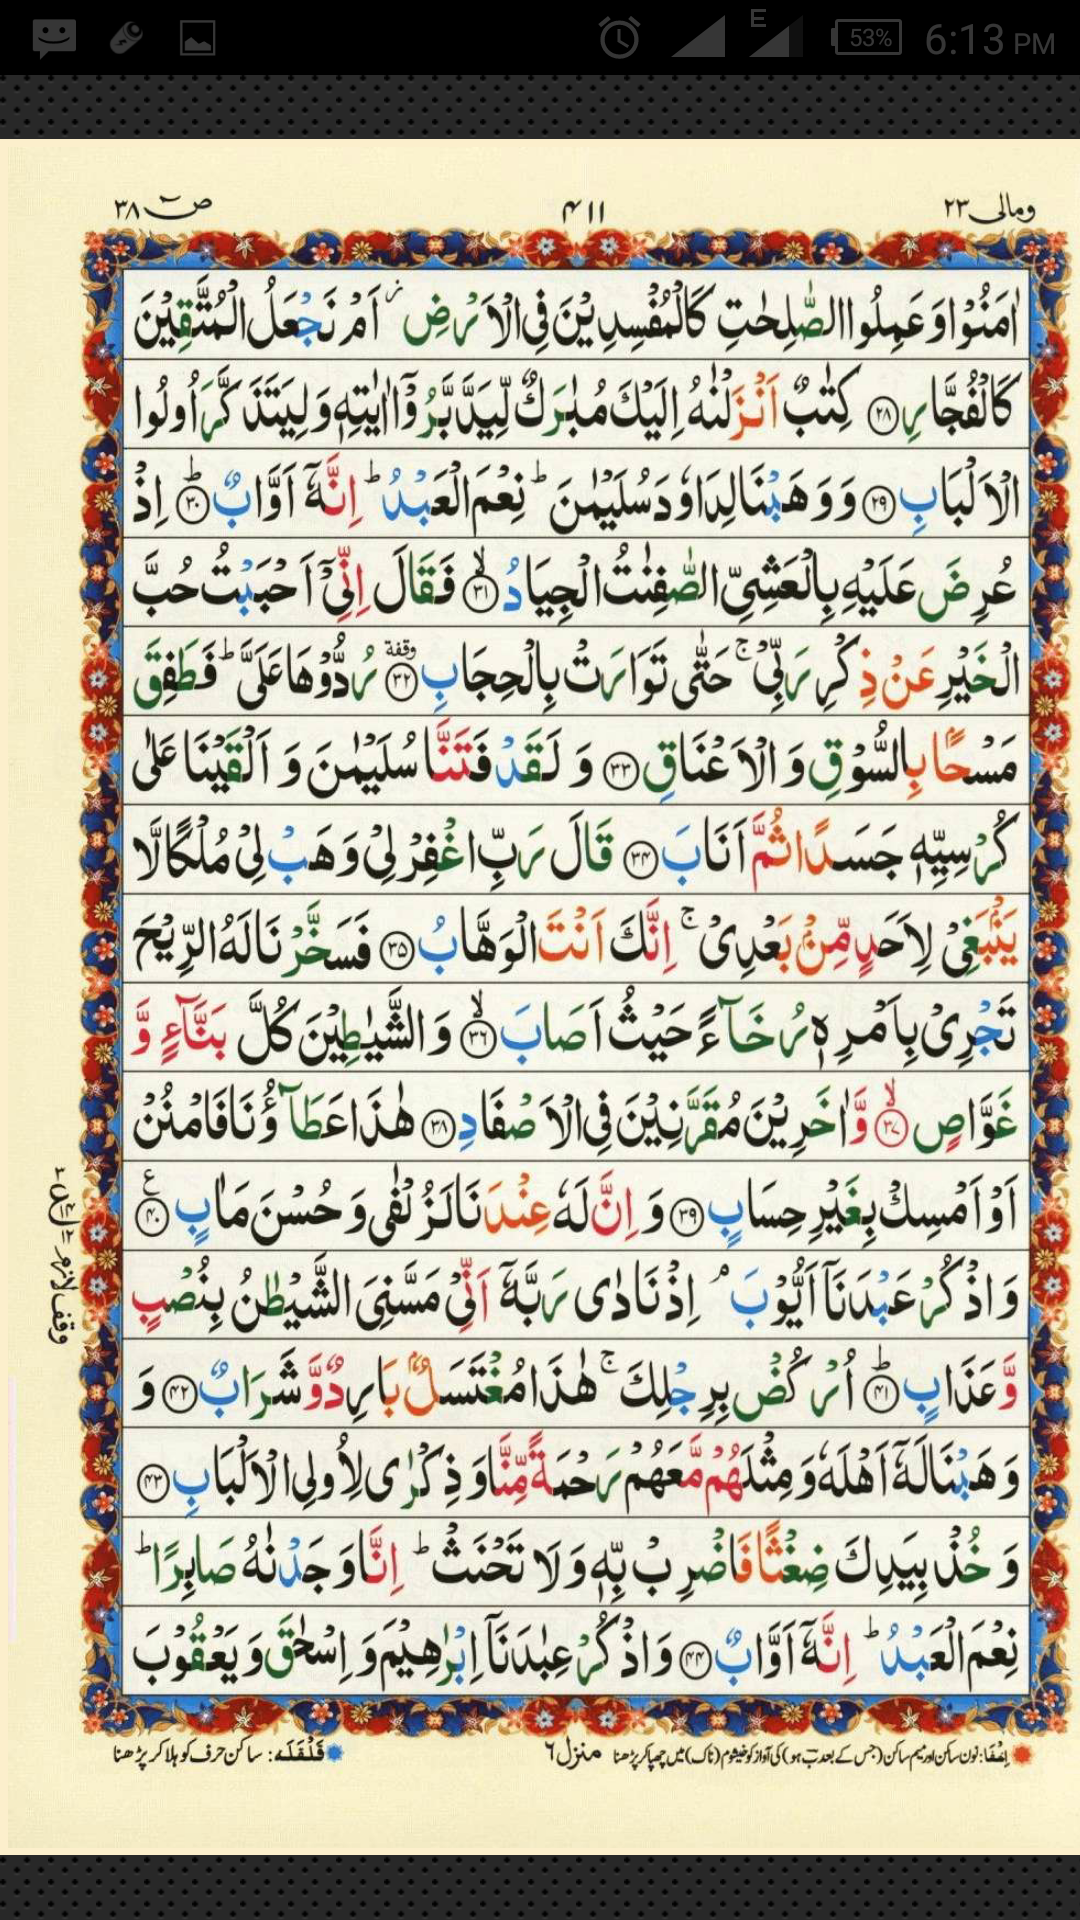 E 53% 6:13 PM
ومالی ۲۳ ۴۱۱ صۤ ۳۸
اٰمَنُوْا وَعَمِلُوا الصّٰلِحٰتِ كَالْمُفْسِدِيْنَ فِی الْاَرْضِ ؗ اَمْ نَجْعَلُ الْمُتَّقِيْنَ
كَالْفُجَّارِ ﴿۲۸﴾ كِتٰبٌ اَنْزَلْنٰهُ اِلَيْكَ مُبٰرَكٌ لِّيَدَّبَّرُوْۤا اٰيٰتِهٖ وَلِيَتَذَكَّرَ اُولُوا
الْاَلْبَابِ ﴿۲۹﴾ وَوَهَبْنَا لِدَاوٗدَ سُلَيْمٰنَ ؕ نِعْمَ الْعَبْدُ ؕ اِنَّهٗۤ اَوَّابٌ ﴿ؕ۳۰﴾ اِذْ
عُرِضَ عَلَيْهِ بِالْعَشِیِّ الصّٰفِنٰتُ الْجِيَادُ ﴿ۙ۳۱﴾ فَقَالَ اِنِّیْۤ اَحْبَبْتُ حُبَّ
الْخَيْرِ عَنْ ذِكْرِ رَبِّیْ ۚ حَتّٰی تَوَارَتْ بِالْحِجَابِ ﴿۳۲﴾ وقفة رُدُّوْهَا عَلَیَّ ؕ فَطَفِقَ
مَسْحًۢا بِالسُّوْقِ وَ الْاَعْنَاقِ ﴿۳۳﴾ وَ لَقَدْ فَتَنَّا سُلَيْمٰنَ وَ اَلْقَيْنَا عَلٰی
كُرْسِيِّهٖ جَسَدًا ثُمَّ اَنَابَ ﴿۳۴﴾ قَالَ رَبِّ اغْفِرْ لِیْ وَ هَبْ لِیْ مُلْكًا لَّا
يَنْۢبَغِیْ لِاَحَدٍ مِّنْۢ بَعْدِیْ ۚ اِنَّكَ اَنْتَ الْوَهَّابُ ﴿۳۵﴾ فَسَخَّرْنَا لَهُ الرِّيْحَ
تَجْرِیْ بِاَمْرِهٖ رُخَآءً حَيْثُ اَصَابَ ﴿ۙ۳۶﴾ وَ الشَّيٰطِيْنَ كُلَّ بَنَّآءٍ وَّ
غَوَّاصٍ ﴿ۙ۳۷﴾ وَّاٰخَرِيْنَ مُقَرَّنِيْنَ فِی الْاَصْفَادِ ﴿۳۸﴾ هٰذَا عَطَآؤُنَا فَامْنُنْ
اَوْ اَمْسِكْ بِغَيْرِ حِسَابٍ ﴿۳۹﴾ وَ اِنَّ لَهٗ عِنْدَنَا لَزُلْفٰی وَ حُسْنَ مَاٰبٍ ﴿۴۰﴾ ع
وَ اذْكُرْ عَبْدَنَاۤ اَيُّوْبَ ۘ اِذْ نَادٰی رَبَّهٗۤ اَنِّیْ مَسَّنِیَ الشَّيْطٰنُ بِنُصْبٍ
وَّ عَذَابٍ ﴿ؕ۴۱﴾ اُرْكُضْ بِرِجْلِكَ ۚ هٰذَا مُغْتَسَلٌۢ بَارِدٌ وَّ شَرَابٌ ﴿۴۲﴾ وَ
وَهَبْنَا لَهٗۤ اَهْلَهٗ وَ مِثْلَهُمْ مَّعَهُمْ رَحْمَةً مِّنَّا وَ ذِكْرٰی لِاُولِی الْاَلْبَابِ ﴿۴۳﴾
وَ خُذْ بِيَدِكَ ضِغْثًا فَاضْرِبْ بِّهٖ وَ لَا تَحْنَثْ ؕ اِنَّا وَجَدْنٰهُ صَابِرًا ؕ
نِعْمَ الْعَبْدُ ؕ اِنَّهٗۤ اَوَّابٌ ﴿۴۴﴾ وَ اذْكُرْ عِبٰدَنَاۤ اِبْرٰهِيْمَ وَ اِسْحٰقَ وَ يَعْقُوْبَ
اِخفَا: نون ساکن اور میم ساکن (جس کے بعد ب ہو) کی آواز کو خیشوم (ناک) میں چھپا کر پڑھنا منزل ۶ قَلْقَلَه: ساکن حرف کو ہلا کر پڑھنا
وقف لازم